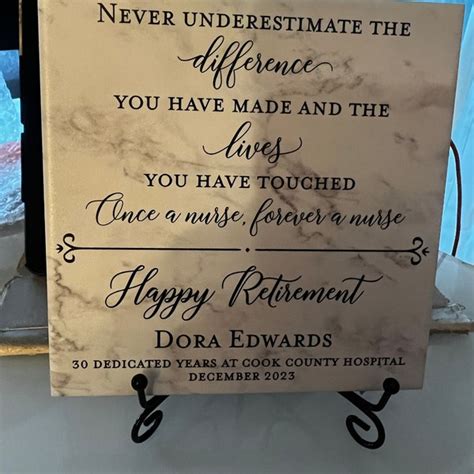 NEVER UNDERESTIMATE THE
difference
YOU HAVE MADE AND THE
lives
YOU HAVE TOUCHED
Once a nurse, forever a nurse
Happy Retirement
DORA EDWARDS
30 DEDICATED YEARS AT COOK COUNTY HOSPITAL
DECEMBER 2023